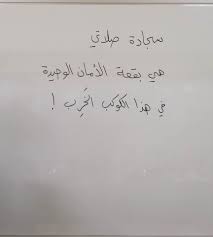 سجادة صلاتي
هي بقعة الأمان الوحيدة
في هذا الكوكب الخَرِب !